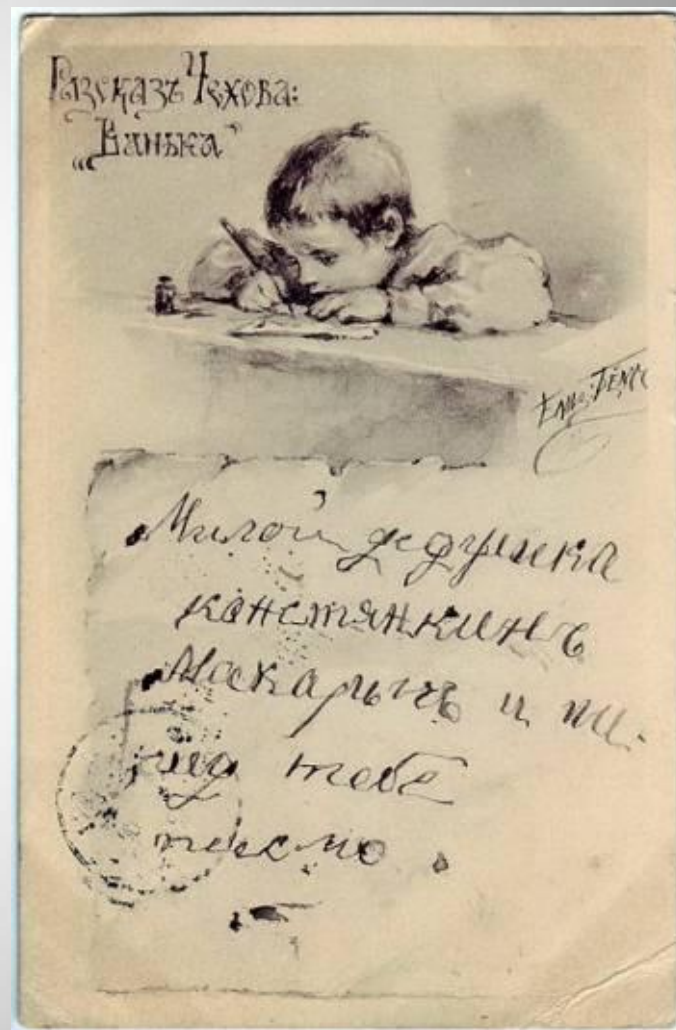 Разсказъ Чехова:
„Ванька"
Милой дедушка
констянкинъ
Макарычъ и пи-
шу тебѣ
писмо.